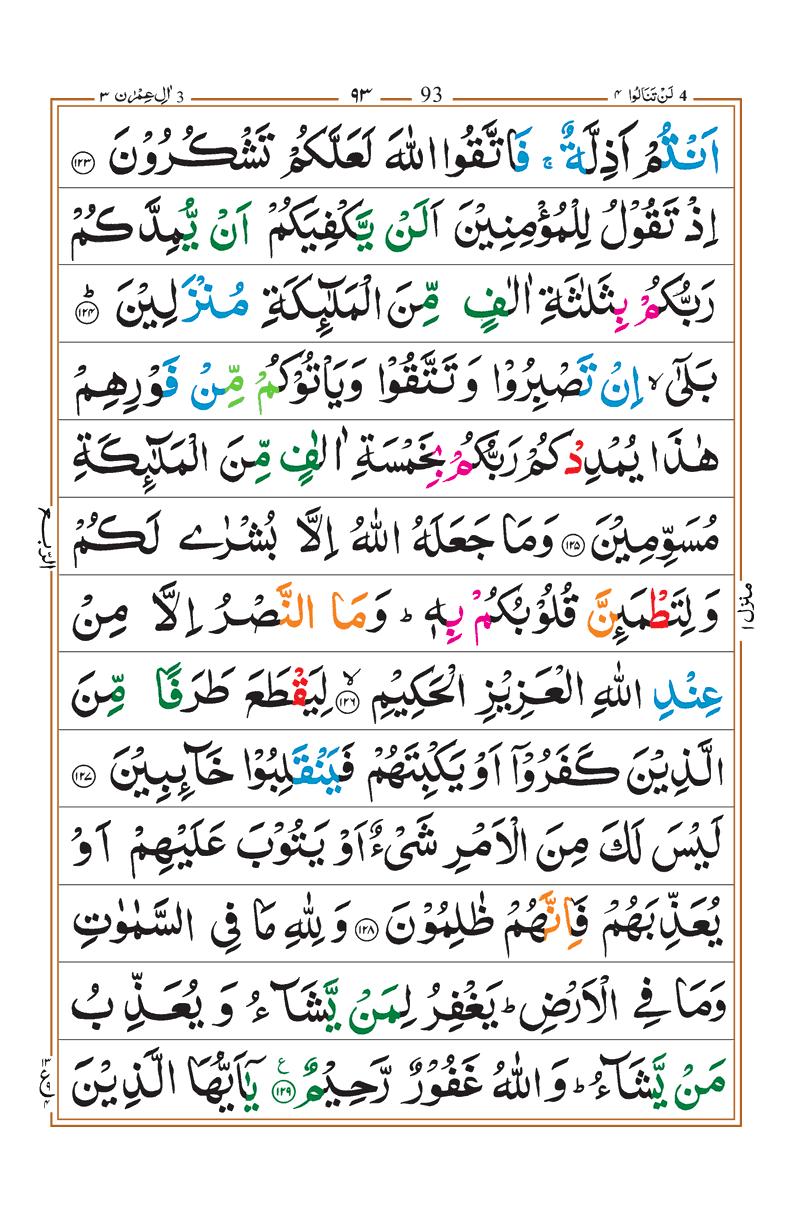 3 اٰلِ عِمْرٰن ٣ ٩٣ 93 لَنْ تَنَالُوا ٤ 4
اَنْتُمْ اَذِلَّةٌ ۚ فَاتَّقُوا اللّٰهَ لَعَلَّكُمْ تَشْكُرُوْنَ ﴿١٢٣﴾
اِذْ تَقُوْلُ لِلْمُؤْمِنِيْنَ اَلَنْ يَّكْفِيَكُمْ اَنْ يُّمِدَّكُمْ
رَبُّكُمْ بِثَلٰثَةِ اٰلٰفٍ مِّنَ الْمَلٰٓئِكَةِ مُنْزَلِيْنَ ﴿١٢٤﴾ؕ
بَلٰٓى ۙ اِنْ تَصْبِرُوْا وَتَتَّقُوْا وَيَاْتُوْكُمْ مِّنْ فَوْرِهِمْ
هٰذَا يُمْدِدْكُمْ رَبُّكُمْ بِخَمْسَةِ اٰلٰفٍ مِّنَ الْمَلٰٓئِكَةِ
مُسَوِّمِيْنَ ﴿١٢٥﴾ وَمَا جَعَلَهُ اللّٰهُ اِلَّا بُشْرٰى لَكُمْ
الرّبع
وَلِتَطْمَئِنَّ قُلُوْبُكُمْ بِهٖ ؕ وَمَا النَّصْرُ اِلَّا مِنْ
منزل ١
عِنْدِ اللّٰهِ الْعَزِيْزِ الْحَكِيْمِ ﴿١٢٦﴾ۙ لِيَقْطَعَ طَرَفًا مِّنَ
الَّذِيْنَ كَفَرُوْٓا اَوْ يَكْبِتَهُمْ فَيَنْقَلِبُوْا خَآئِبِيْنَ ﴿١٢٧﴾
لَيْسَ لَكَ مِنَ الْاَمْرِ شَىْءٌ اَوْ يَتُوْبَ عَلَيْهِمْ اَوْ
يُعَذِّبَهُمْ فَاِنَّهُمْ ظٰلِمُوْنَ ﴿١٢٨﴾ وَلِلّٰهِ مَا فِى السَّمٰوٰتِ
وَمَا فِى الْاَرْضِ ؕ يَغْفِرُ لِمَنْ يَّشَآءُ وَيُعَذِّبُ
مَنْ يَّشَآءُ ؕ وَاللّٰهُ غَفُوْرٌ رَّحِيْمٌ ﴿١٢٩﴾ ع يٰٓاَيُّهَا الَّذِيْنَ
١٣
ع ٩
٤